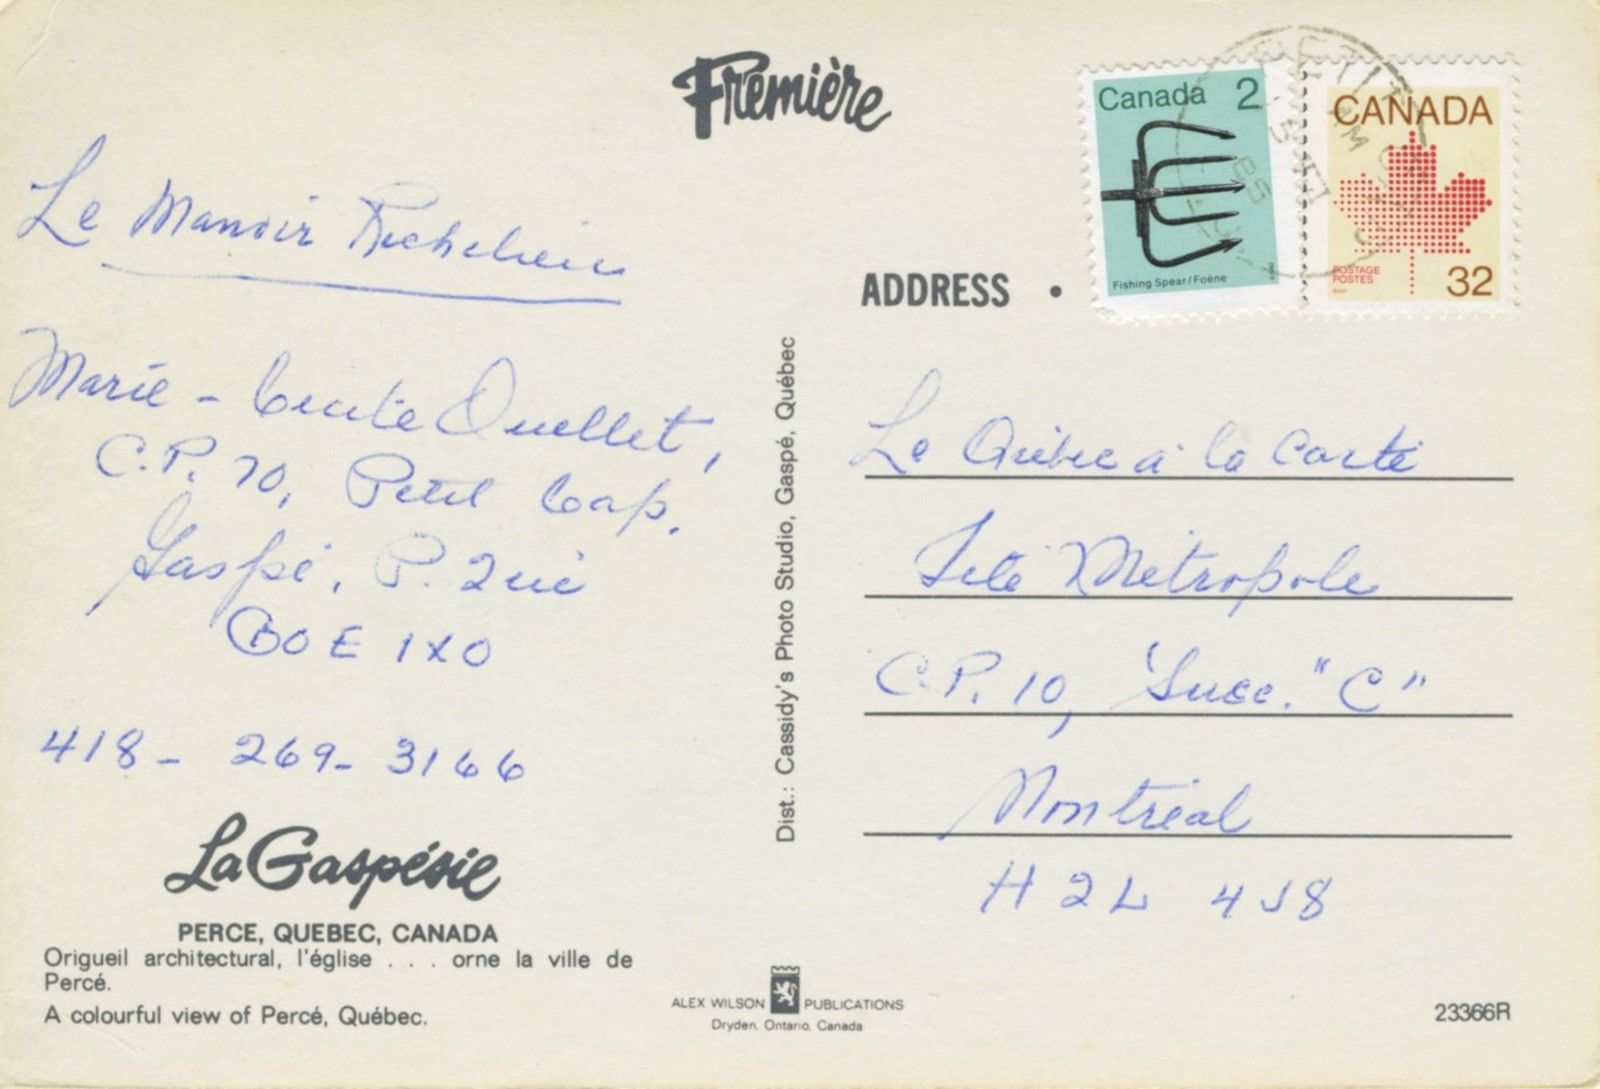 Première
Le Manoir Richelieu
Marie-Cecile Ouellet,
C.P. 70, Petit Cap.
Gaspé, P. Qué
G0E 1X0
418-269-3166
La Gaspésie
PERCE, QUEBEC, CANADA
Origueil architectural, l'église . . . orne la ville de
Percé.
A colourful view of Percé, Québec.
Dist.: Cassidy's Photo Studio, Gaspé, Québec
ALEX WILSON PUBLICATIONS
Dryden, Ontario, Canada
Canada 2
Fishing Spear/Foëne
CANADA
POSTAGE
POSTES
32
ADDRESS •
Le Québec à la Carte
Télé Métropole
C.P. 10, Succ. "C"
Montréal
H2L 4J8
23366R